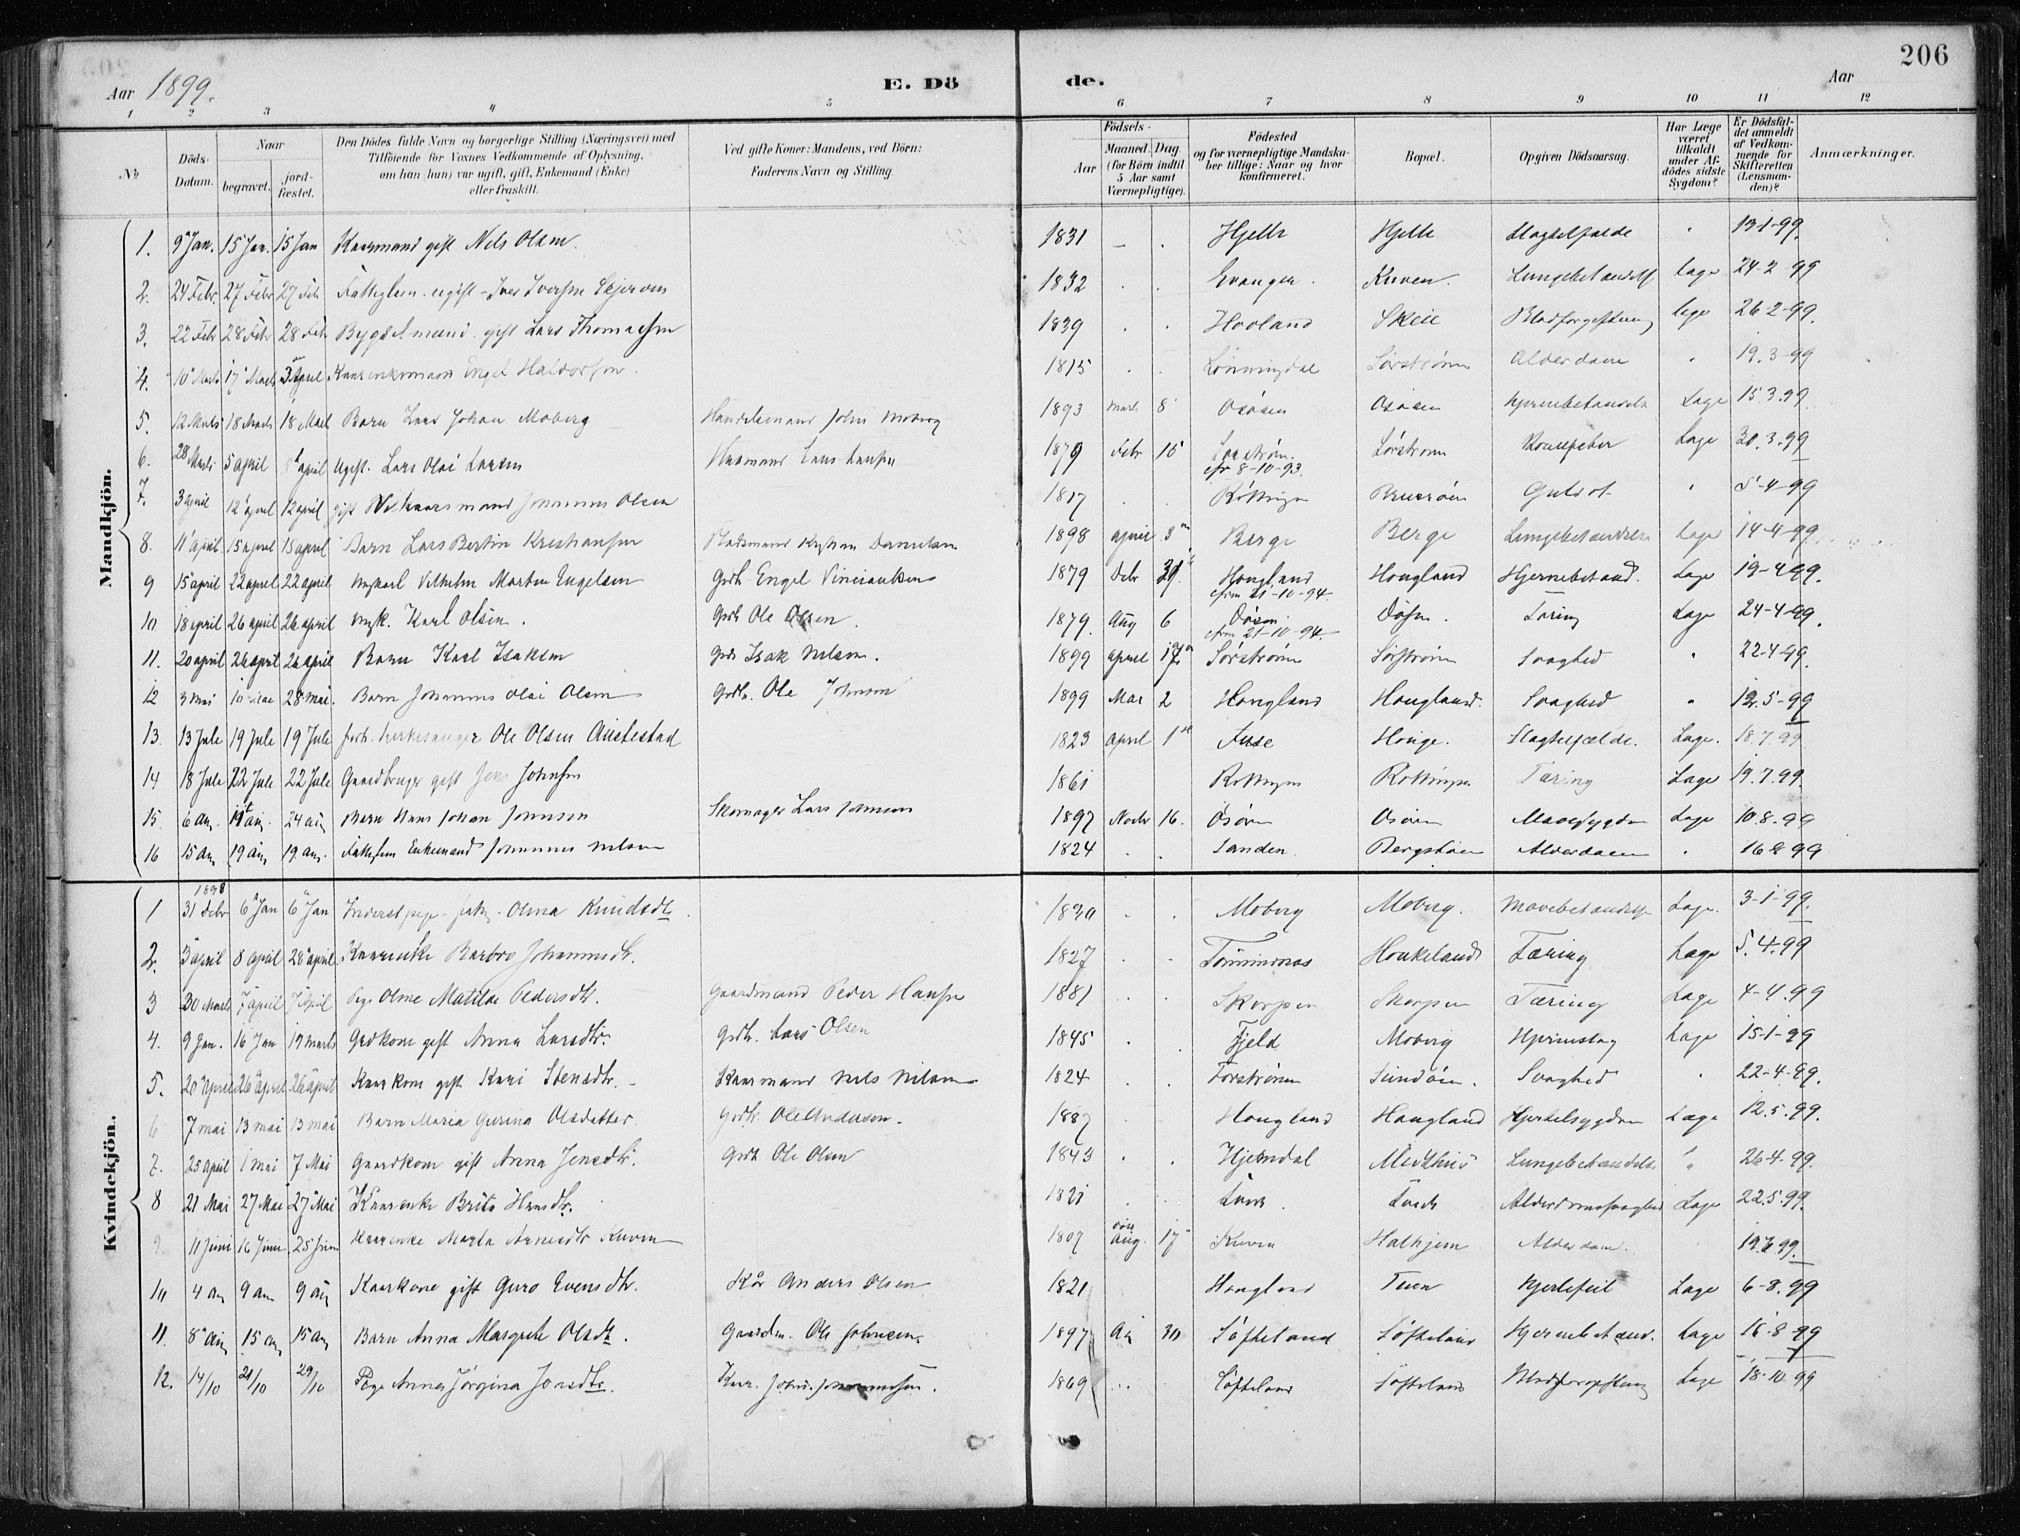 206
Aar 1899. E. Dö de. Aar
1 2 3 4 5 6 7 8 9 10 11 12
No
Döds-Datum.
Naar
begravet.
jordfæstet.
Den Dödes fulde Navn og borgerlige Stilling (Næringsvei) med Tilföiende for Voxnes Vedkommende af Oplysning, om han (hun) var ugift, gift, Enkemand (Enke) eller fraskilt.
Ved gifte Koner: Mandens, ved Börn: Faderens Navn og Stilling.
Födsels-
Aar
Maaned. Dag
(for Börn indtil 5 Aar samt Værnepligtige).
Födested og for værnepligtige Mandskaber tillige: Naar og hvor konfirmeret.
Bopæl.
Opgiven Dödsaarsag.
Har Læge været tilkaldt under Afdödes sidste Sygdom?
Er Dödsfaldet anmeldt af Vedkommende for Skifteretten (Lensmanden)?
Anmærkninger.
Mandkjön.
1. 9 Jan. 15 Jan. 15 Jan Kaarmand gift Nels Olsen. 1831 Hjelle Hjelle Slagtilfælde 13-1-99.
2. 24 Febr. 27 Febr 27 Feb ugift Iver Iversen Skjerven 1832 Evanger. Kuven. Lungebetændelse Læge 24-2-99
3. 22 Febr 28 Febr 28 Febr Bygdelmand gift Lars Thomassen 1839 Hovland Skeie Blodforgiftning læge 26-2-99.
4. 10 Marts 17 Marts 3 April Kaarenkemand Engel Haldorsen. 1815 Lønningdal Sørstrønen Alderdom 19.3-99
5. 12 Marts 18 Marts 18 Mars Barn Lars Johan Moberg Handelsmand John Moberg 1893 Marts 8 Osøren Osøren Hjernebetændelse Læge 15.3.99.
6. 28 Marts 5 april april Ugift. Lars Olai Larsen Husmand Lars Larsen 1879 Febr 15 Sørstrøn. cfr 8-10-93. Sørstrønen Læge 30.3.99
7. 3 april 12 april 12 april gift Kaarsmand Johannes Olsen 1817 Røttingen Bruarøen Gulsot 5-4-99
8. 11 april 15 april 15 april Barn Lars Bertin Kristiansen Pladsmand Kristian Danielsen 1898 april 3 Berge Berge Lungebetændelse Læge 14-4-99
9 15 april 22 april 22 april ungkarl Vilhelm Martin Engelsen Grdb Engel 1879 Debr 31 Hougland cfrm 21-10-94. Hougland Hjernebetænd. Læge 19-4-99.
10 18 april 26 april 26 april ungk. Karl Olsen. Grdb Ole Olsen. 1879. Aug 6 Døsen cfrm 21-10-94. Døsen. Tæring Læge 24-4-99.
11. 20 april 26 april 26 april Barn Karl Isaksen Grdb Isak Nilsen. 1899 april 17 Sørstrønen Sørstrønen Svaghed 22-4-99.
12 3 Mai 10 Mai 28 Mai. Barn Johannes Olai Olsen Grdb. Ole Johnsen 1899 Mar 2 Hougland Hougland. Svaghed 12.5-99
13. 13 Juli 19 Juli 19 Juli forh. kirkesanger Ole Olsen Austestad 1823 april 1 Fuse Hauge. Slagtilfælde. Læge. 18.7.99
14 18 Jule 22 Jule 22 Jule Gaardbruger gift Jens Johnsen 1861 Røttingen Røttingen Tæring Læge 19.7.99.
15. 6 aug. 11 aug. 24 aug Barn Hans Johan Johnsen Skomager Lars Johnsen 1897 Novbr 16. Osøren Osøren Mavesygdom Læge 10.8.99
16 15 aug 19 aug 19 aug. Fattiglem Enkemand Johannes Nilsen 1824 Sanden. Bergstøen Alderdom 16-8-99
Kvindekjön.
1 1898 31 Debr 6 Jan 6 Jan Inderst pige Olina Knudsdtr. 1830 Moberg Moberg. Mavebetændelse Læge. 3-1-99.
2. 3 april 8 april 28 april Kaarenke Barbro Johannesdtr. 1827 Haukeland Tæring Læge 5.4-99
3 30 Marts 7 april 7 april Pige Olme Matilde Pedersdtr. Gaardmand Peder Hansen 1881 Skorpen Skorpen Tæring Læge 4-4.99
4. 9 Jan. 16 Jan 19 marts Grdkone gift Anna Larsdtr. Grdb. Lars Olsen 1845 Fjeld Moberg Hjerneslag Læge 15-1-99
5. 20 april 26 april 26 april Kaarkone gift Kari Stensdtr. Kaarmand Nils Nilsen 1824 Sundøen. Svaghed 22-4-99.
6 7 mai 13 mai 13 mai Barn Maria Gurina Olsdatter Grdb. Ole Andersen. 1887 Hougland Hougland Kjertelsygdom Læge 12.5.99.
7. 25 april 1 mai 7 Mai Gaardkone gift Anna Jensdtr. Grdb Ole Olsen 1843 Hjelmdal Lungebetændelse 26-4-99.
8 21 Mai 27 Mai 27 Mai Kaarenke Brita Hansdtr. 1821 Alderdomssvaghed Læge 22.5.99.
9. 11 Juni 16 Juni 25 Juni Kaarenke Marta Arnesdtr Kuven 1807 Aug. 17 Kuven Halhjem Alderdom.
10 4 aug 9 aug 9 aug Kaarkone gift Guro Evensdtr. Kår Anders Olsen 1821 Hougland Tuen Hjertefeil Læge 6-8.99
11. 8 aug 15 aug 15 aug Barn Anna Margrete Olsdtr. Gaardm. Ole Johnsen. 1897 Au 30 Søfteland Søfteland Hjernebetænd. Læge 16-8-99
12. 14/10 21/10 29/10 Pige Anna Jørgina Jonsdtr. 1869 Søfteland Søfteland Blodforgiftning Læge 18-10-99